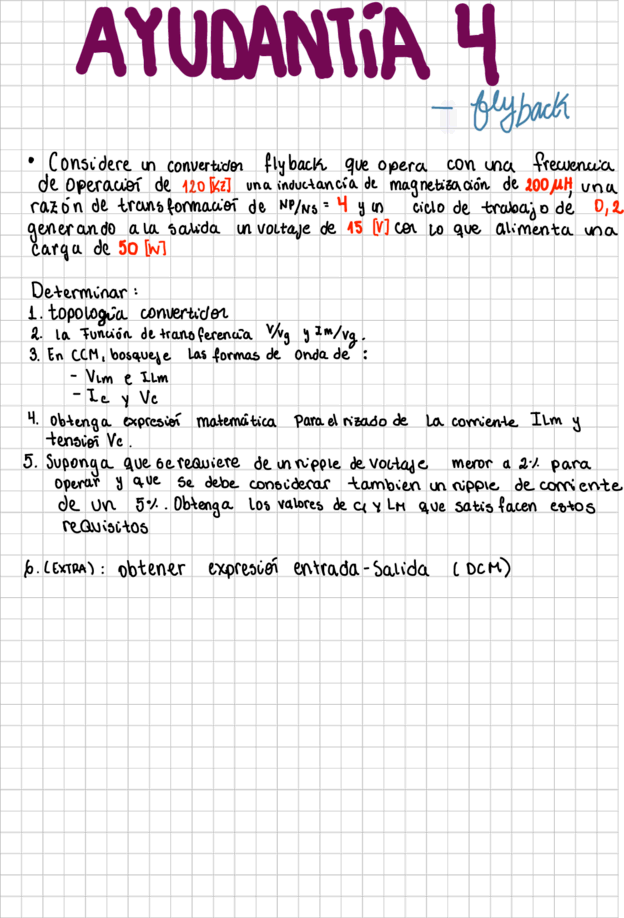 AYUDANTÍA 4
- flyback
• Considere un convertidor flyback que opera con una frecuencia
de operación de 120 [kz] una inductancia de magnetización de 200 μH, una
razón de transformación de NP/NS = 4 y un ciclo de trabajo de 0,2
generando a la salida un voltaje de 15 [V] con lo que alimenta una
carga de 50 [W]
Determinar:
1. topología convertidor
2. la Función de transferencia V/Vg y Im/Vg.
3. En CCM, bosqueje las formas de onda de :
- VLm e ILm
- Ic y Vc
4. obtenga expresión matemática para el rizado de la corriente ILm y
tensión Vc.
5. Suponga que se requiere de un ripple de voltaje menor a 2% para
operar y que se debe considerar tambien un ripple de corriente
de un 5%. Obtenga los valores de C1 y LM que satisfacen estos
requisitos
6. (EXTRA): obtener expresión entrada-salida (DCM)